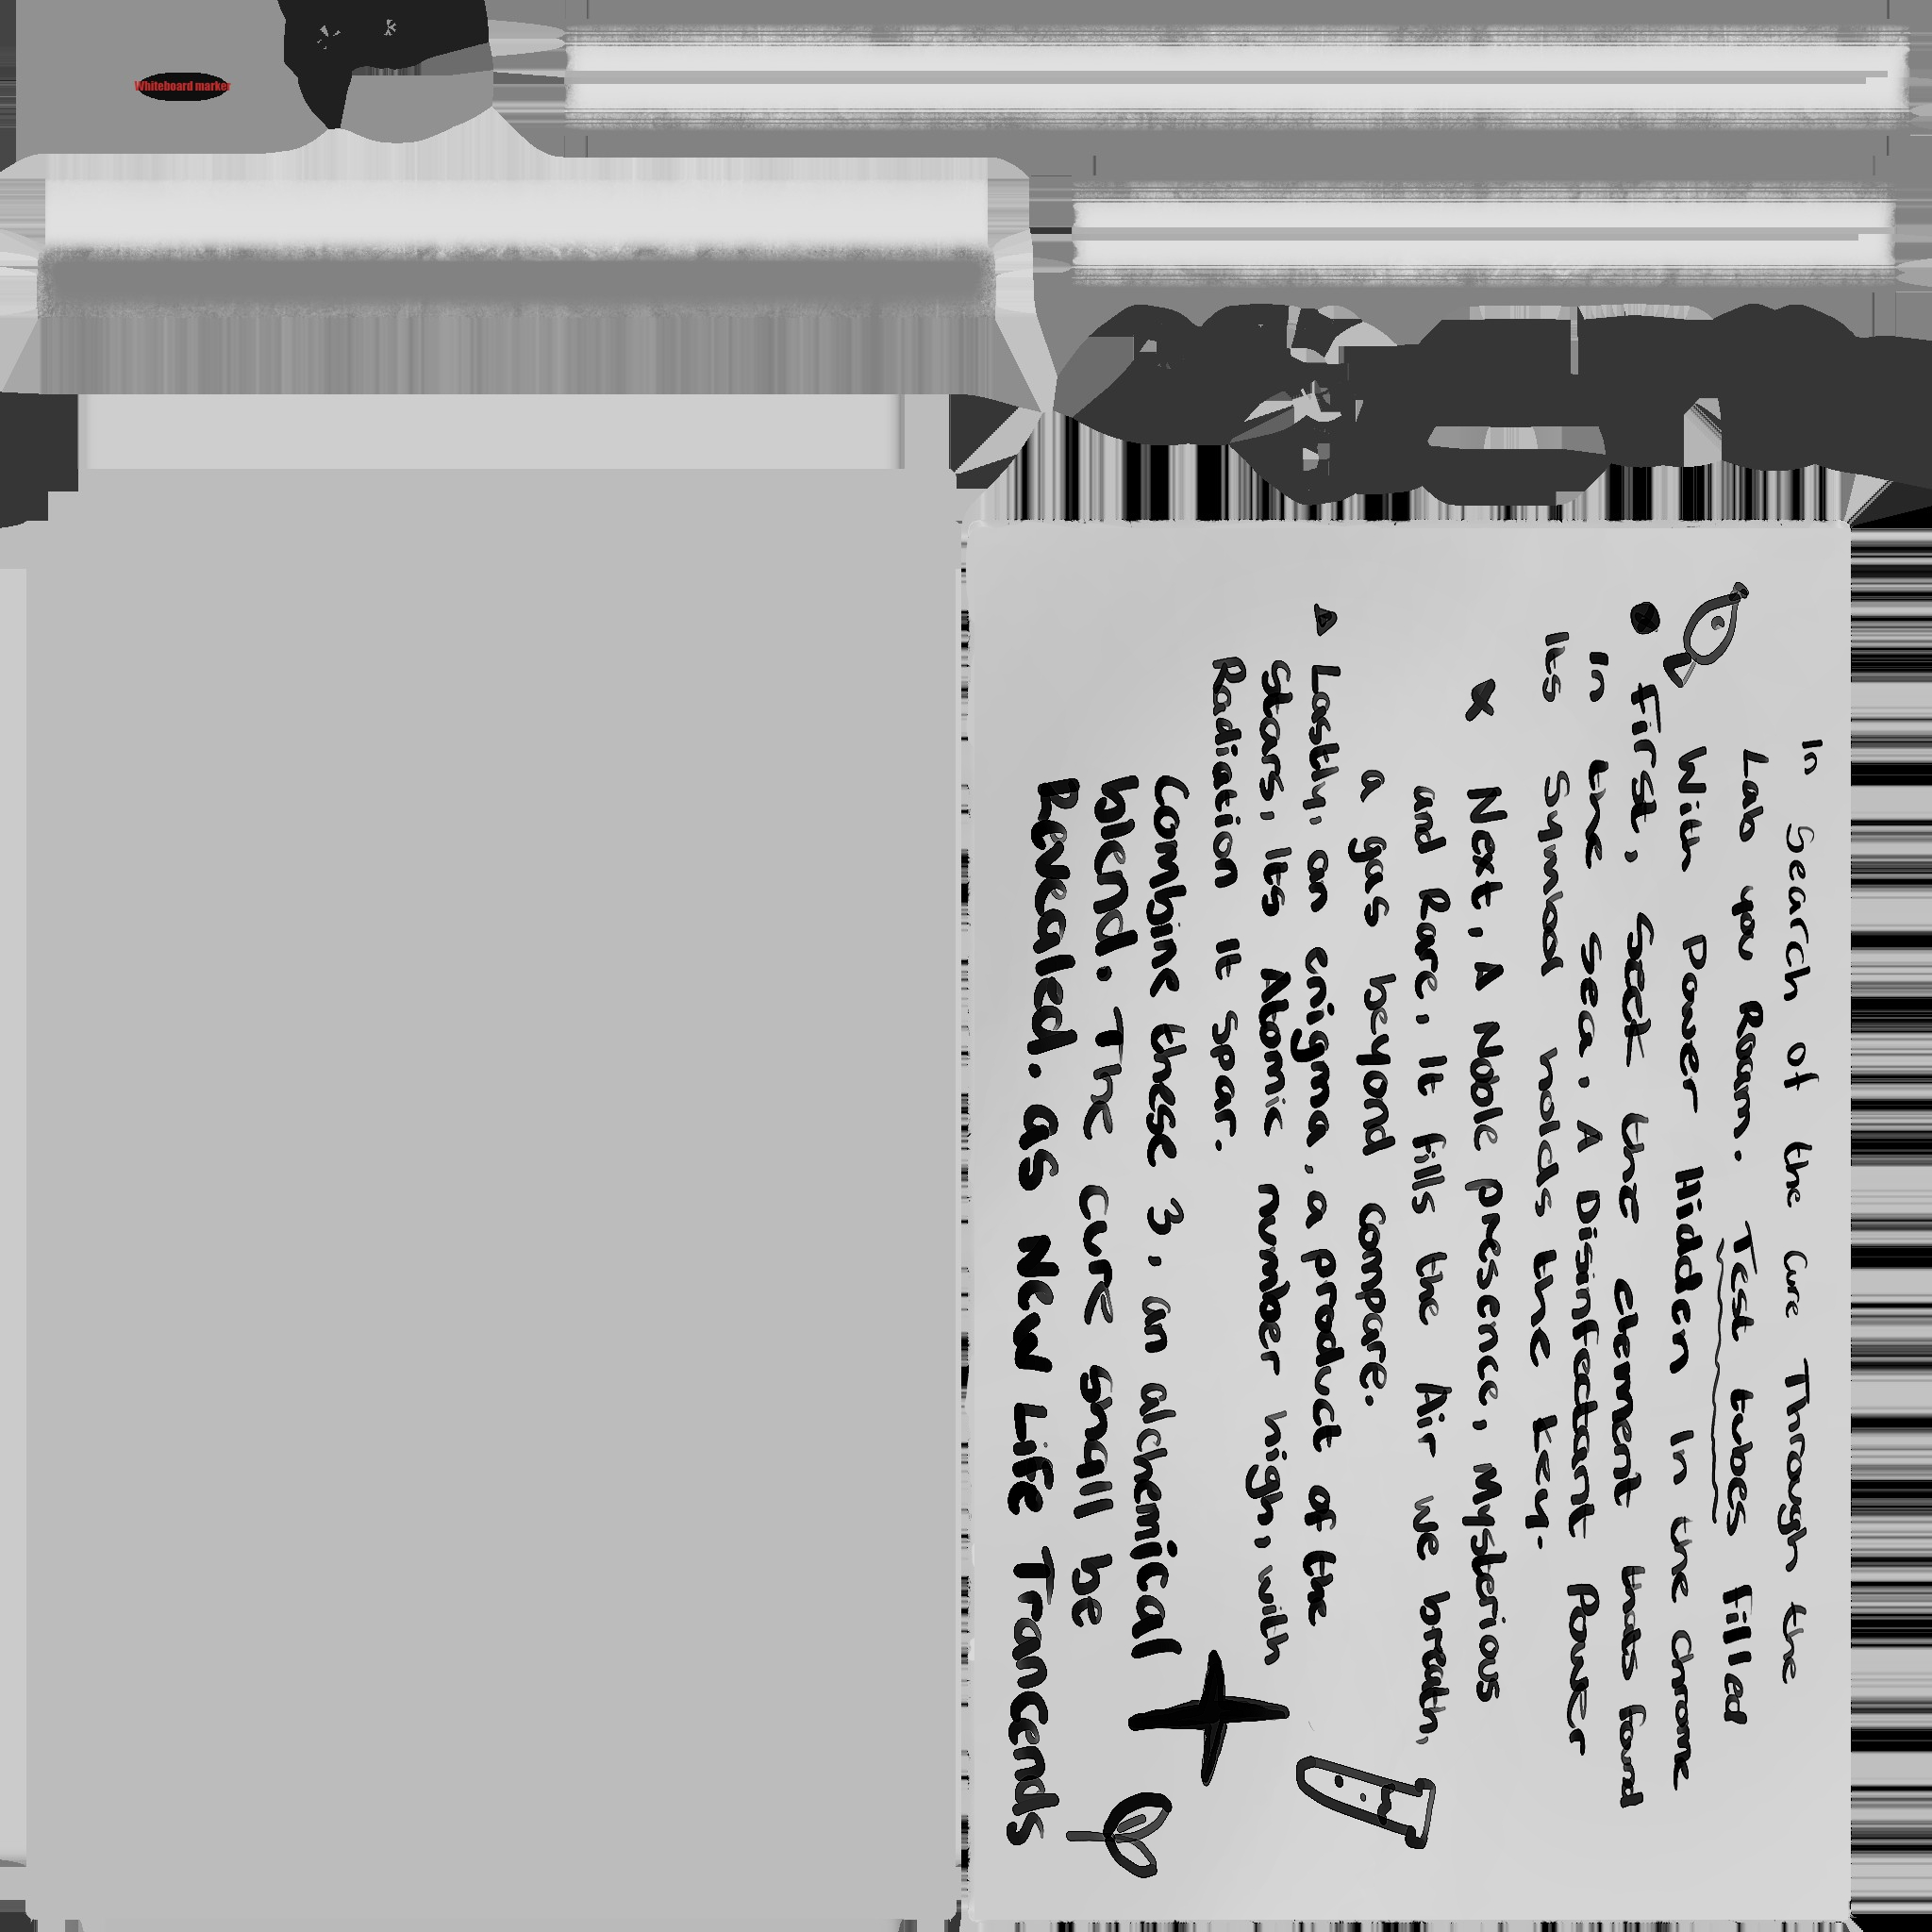 Whiteboard marker
In Search of the Cure Through the
Lab you Roam. Test tubes filled
With Power Hidden In the chrome
First, Seek the element thats found
In the sea. A Disinfectant Power
Its Symbol holds the key.
Next, A Noble presence, Mysterious
and Rare, It fills the Air we breath,
a gas beyond compare.
Lastly, an enigma, a product of the
Stars, Its Atomic number high, with
Radiation It Spar.
Combine these 3, an alchemical
blend. The cure shall be
Revealed. as New Life Trancends